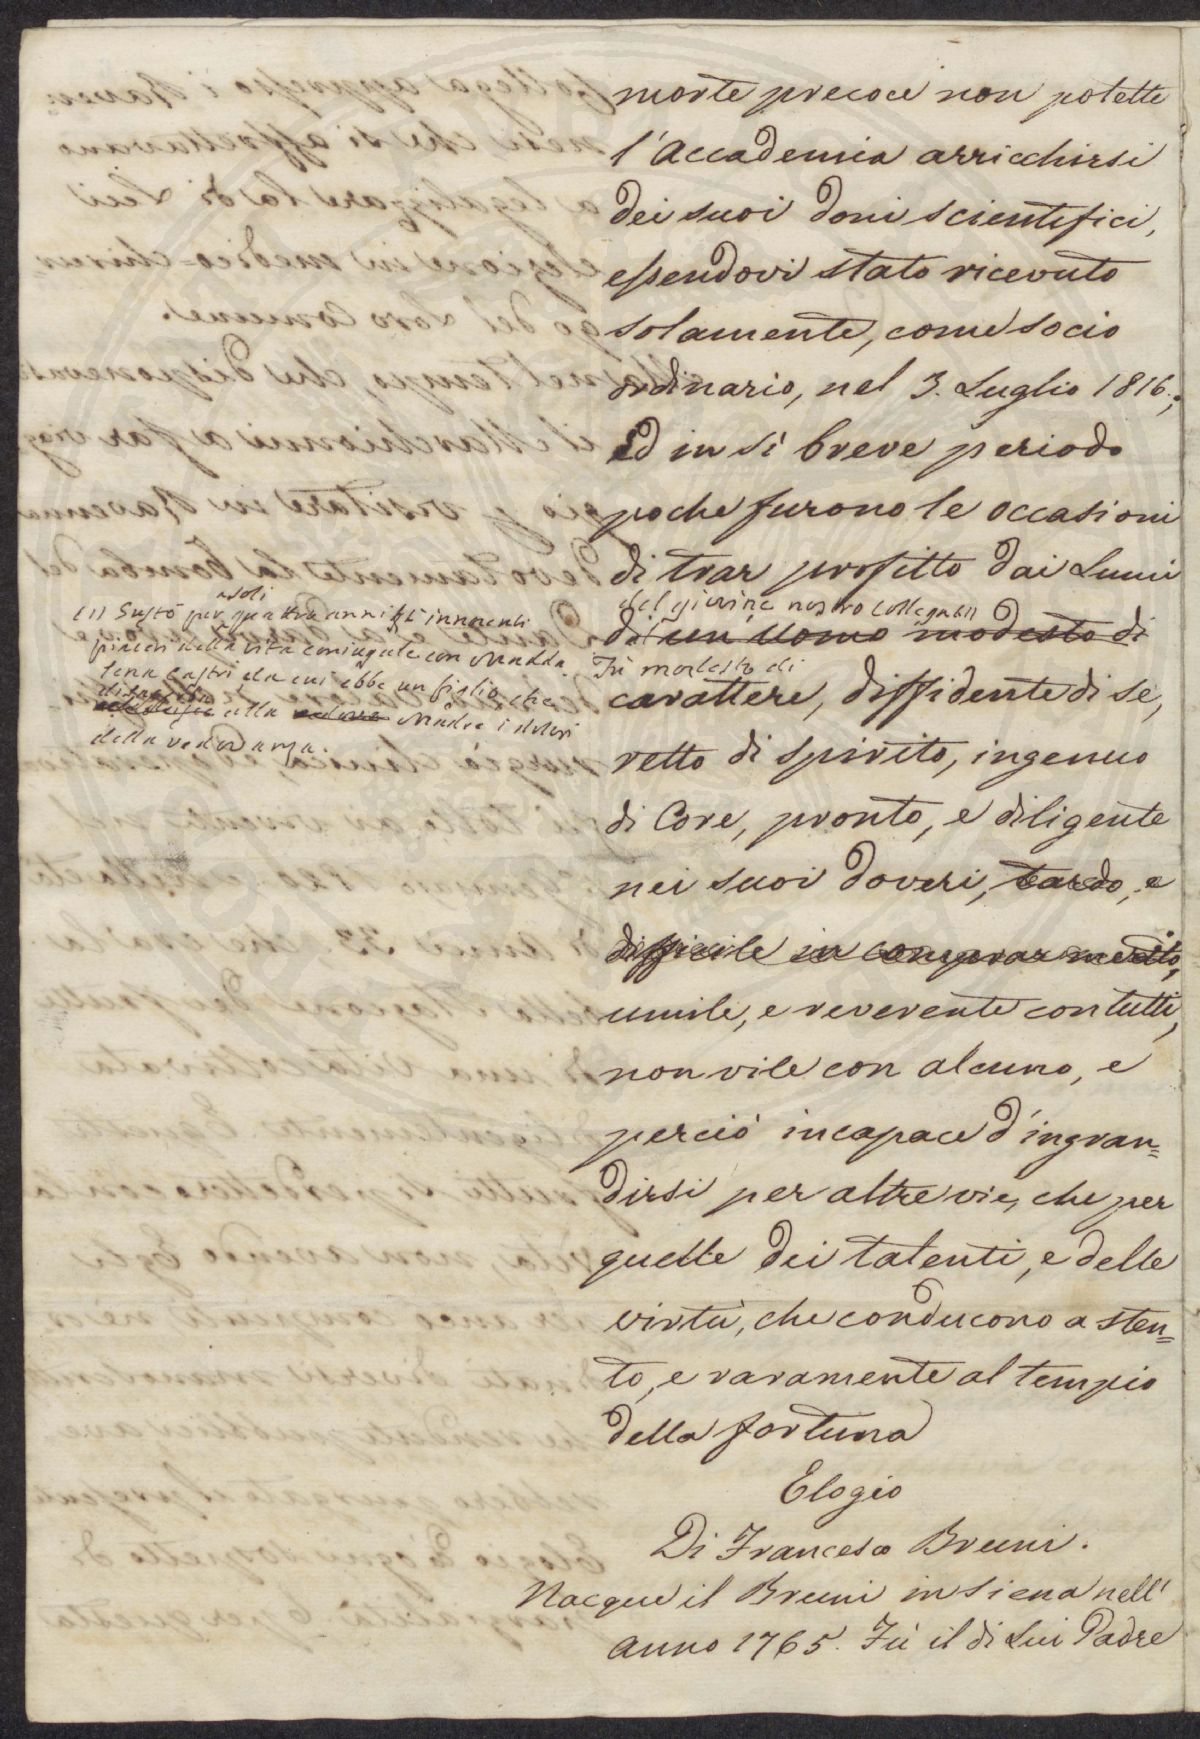 morte precoce non potette
l'Accademia arricchirsi
dei suoi doni scientifici,
essendovi stato ricevuto
solamente, come socio
ordinario, nel 3. Luglio 1816.;
ed in sì breve periodo
poche furono le occasioni
di trar profitto dai Lumi
del giovine nostro Collega (1)
di un Uomo modesto di
Fù modesto di
carattere, diffidente di se,
retto di spirito, ingenuo
di Core, pronto, e diligente
nei suoi doveri, tardo, e
difficile in comprar merito,
umile, e reverente con tutti,
non vile con alcuno, e
perciò incapace d'ingran=
dirsi per altre vie, che per
quelle dei talenti, e delle
virtù, che conducono a sten=
to, e raramente al tempio
della fortuna
Elogio
Di Francesco Bruni.
Nacque il Bruni in Siena nell'
anno 1765. Fù il di Lui Padre
soli
(1) Gustò per quattro anni gl'innocenti
piaceri della vita coniugale con Madda=
lena Castri da cui ebbe un figlio che
alla Madre i dolori
della vedovanza.